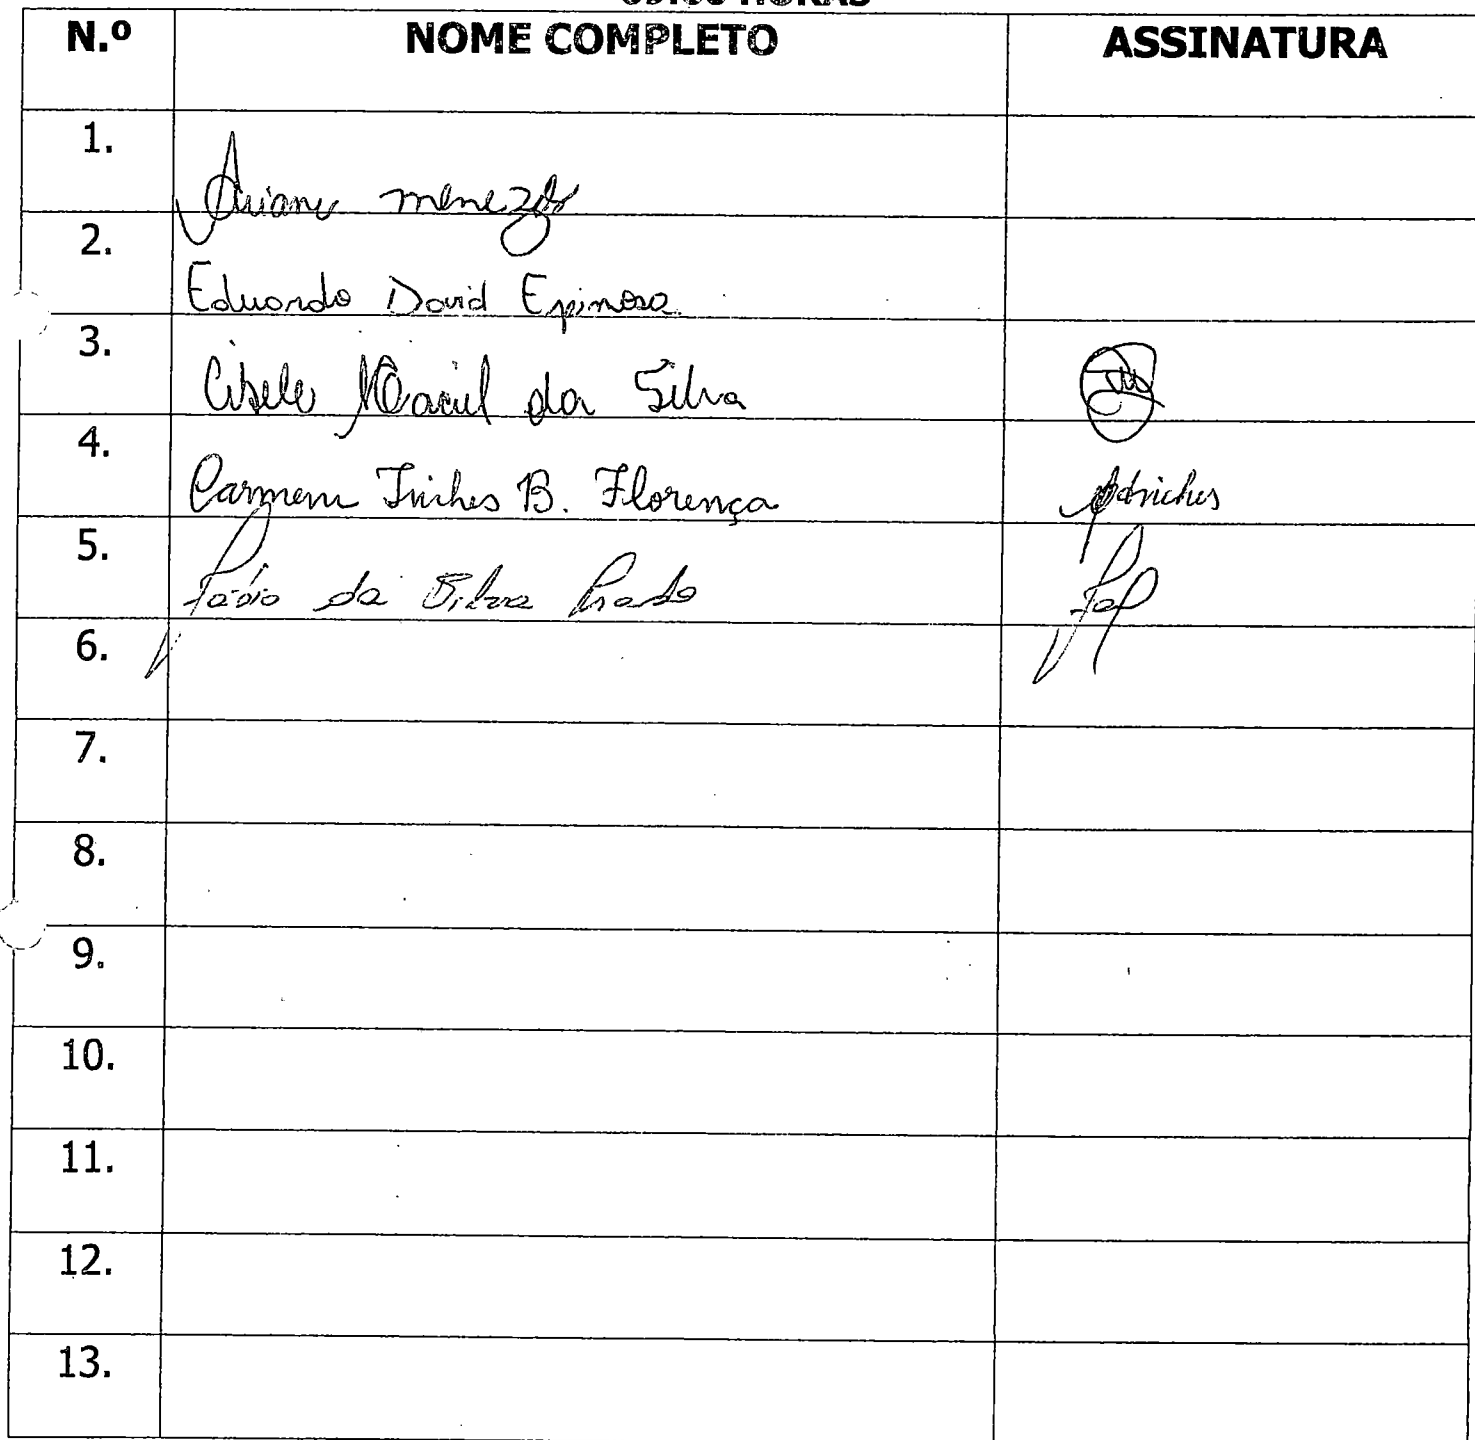 HORAS
N.º NOME COMPLETO ASSINATURA
1. Ariane menezes
2. Eduardo David Espinosa
3. Cibele Maciel da Silva
4. Carmem Triches B. Florença
5. Fábio da Silva Prado
6.
7.
8.
9.
10.
11.
12.
13.